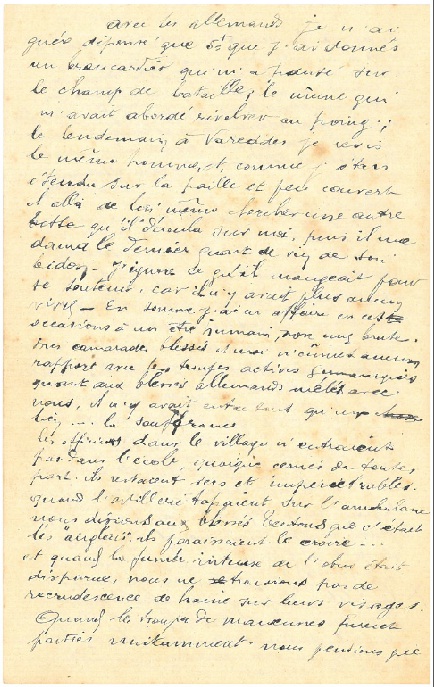 avec les allemands je n'ai
guère dépensé que 5f que j'ai donnés
un brancardier qui m'a pansé sur
le champ de bataille; le même qui
m'avait abordé révolver au poing;
le lendemain à Vareddes je revis
le même homme, et comme j'étais
étendu sur la paille et peu couvert
il alla de lui même chercher une autre
botte qu'il déroula sur moi, puis il me
donna le dernier quart de vin de son
bidon – J'ignore ce qu'il mangeait pour
se soutenir, car il n'y avait plus aucun
vivres – En somme j'ai eu affaire en
occasions à un être humain, non une brute
mes camarades blessés et moi n'eûmes aucun
rapport avec les troupes actives
quant aux blessés allemands mêlés avec
nous, il n'y avait entre tout qu'un
la souffrance
les officiers dans le village n'entraient
pas dans l'école, quoique cernés de toutes
part. ils restaient secs et impénétrables.
quand l'artillerie tapait sur l'ambulance
nous disions aux blessés teutons que c'était
les anglais, ils paraissaient le croire
et quand la fumée intense de l'obus était
disparue, nous ne trouvions pas de
recrudescence de haine sur leurs visages.
Quand les troupes de furent
parties nuitamment nous pensions que